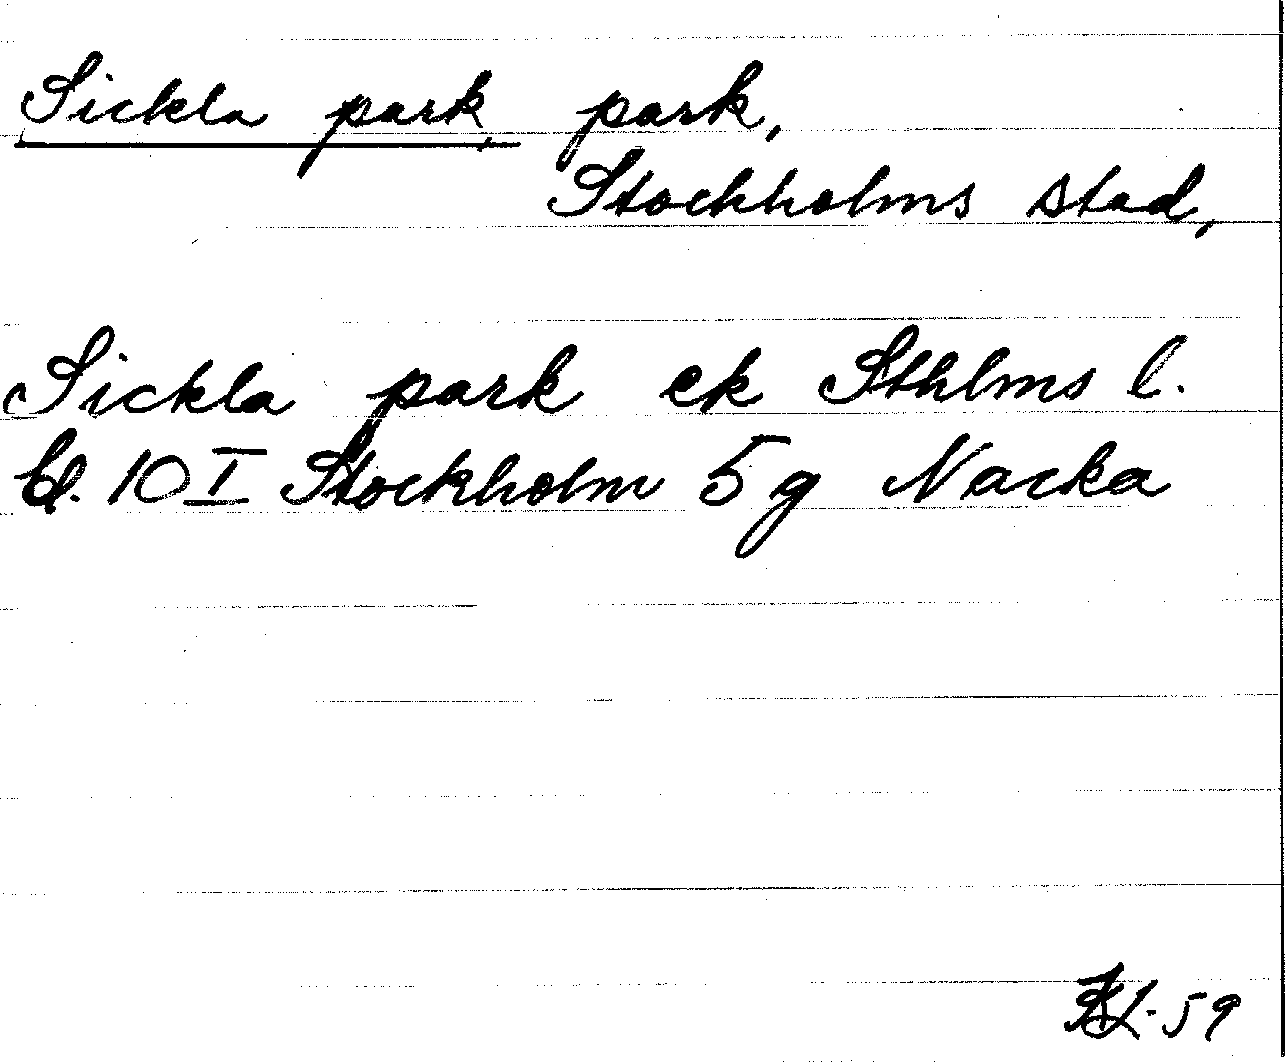 Sickla park, park,
Stockholms stad,
Sickla park ek Sthlms l.
bl. 10 I Stockholm 5 g Nacka
-59